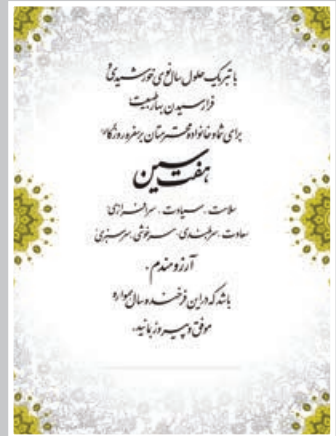 با تبریک حلول سال نوی خورشیدی و
فرا رسیدن بهار طبیعت
برای شما و خانواده محترمتان بر سفره روزگار
هفت سین
سلامت، سیادت، سرافرازی،
سعادت، سربلندی، سرخوشی، سرسبزی
آرزومندم.
باشد که در این فرخنده سال همواره
موفق و پیروز بمانید.